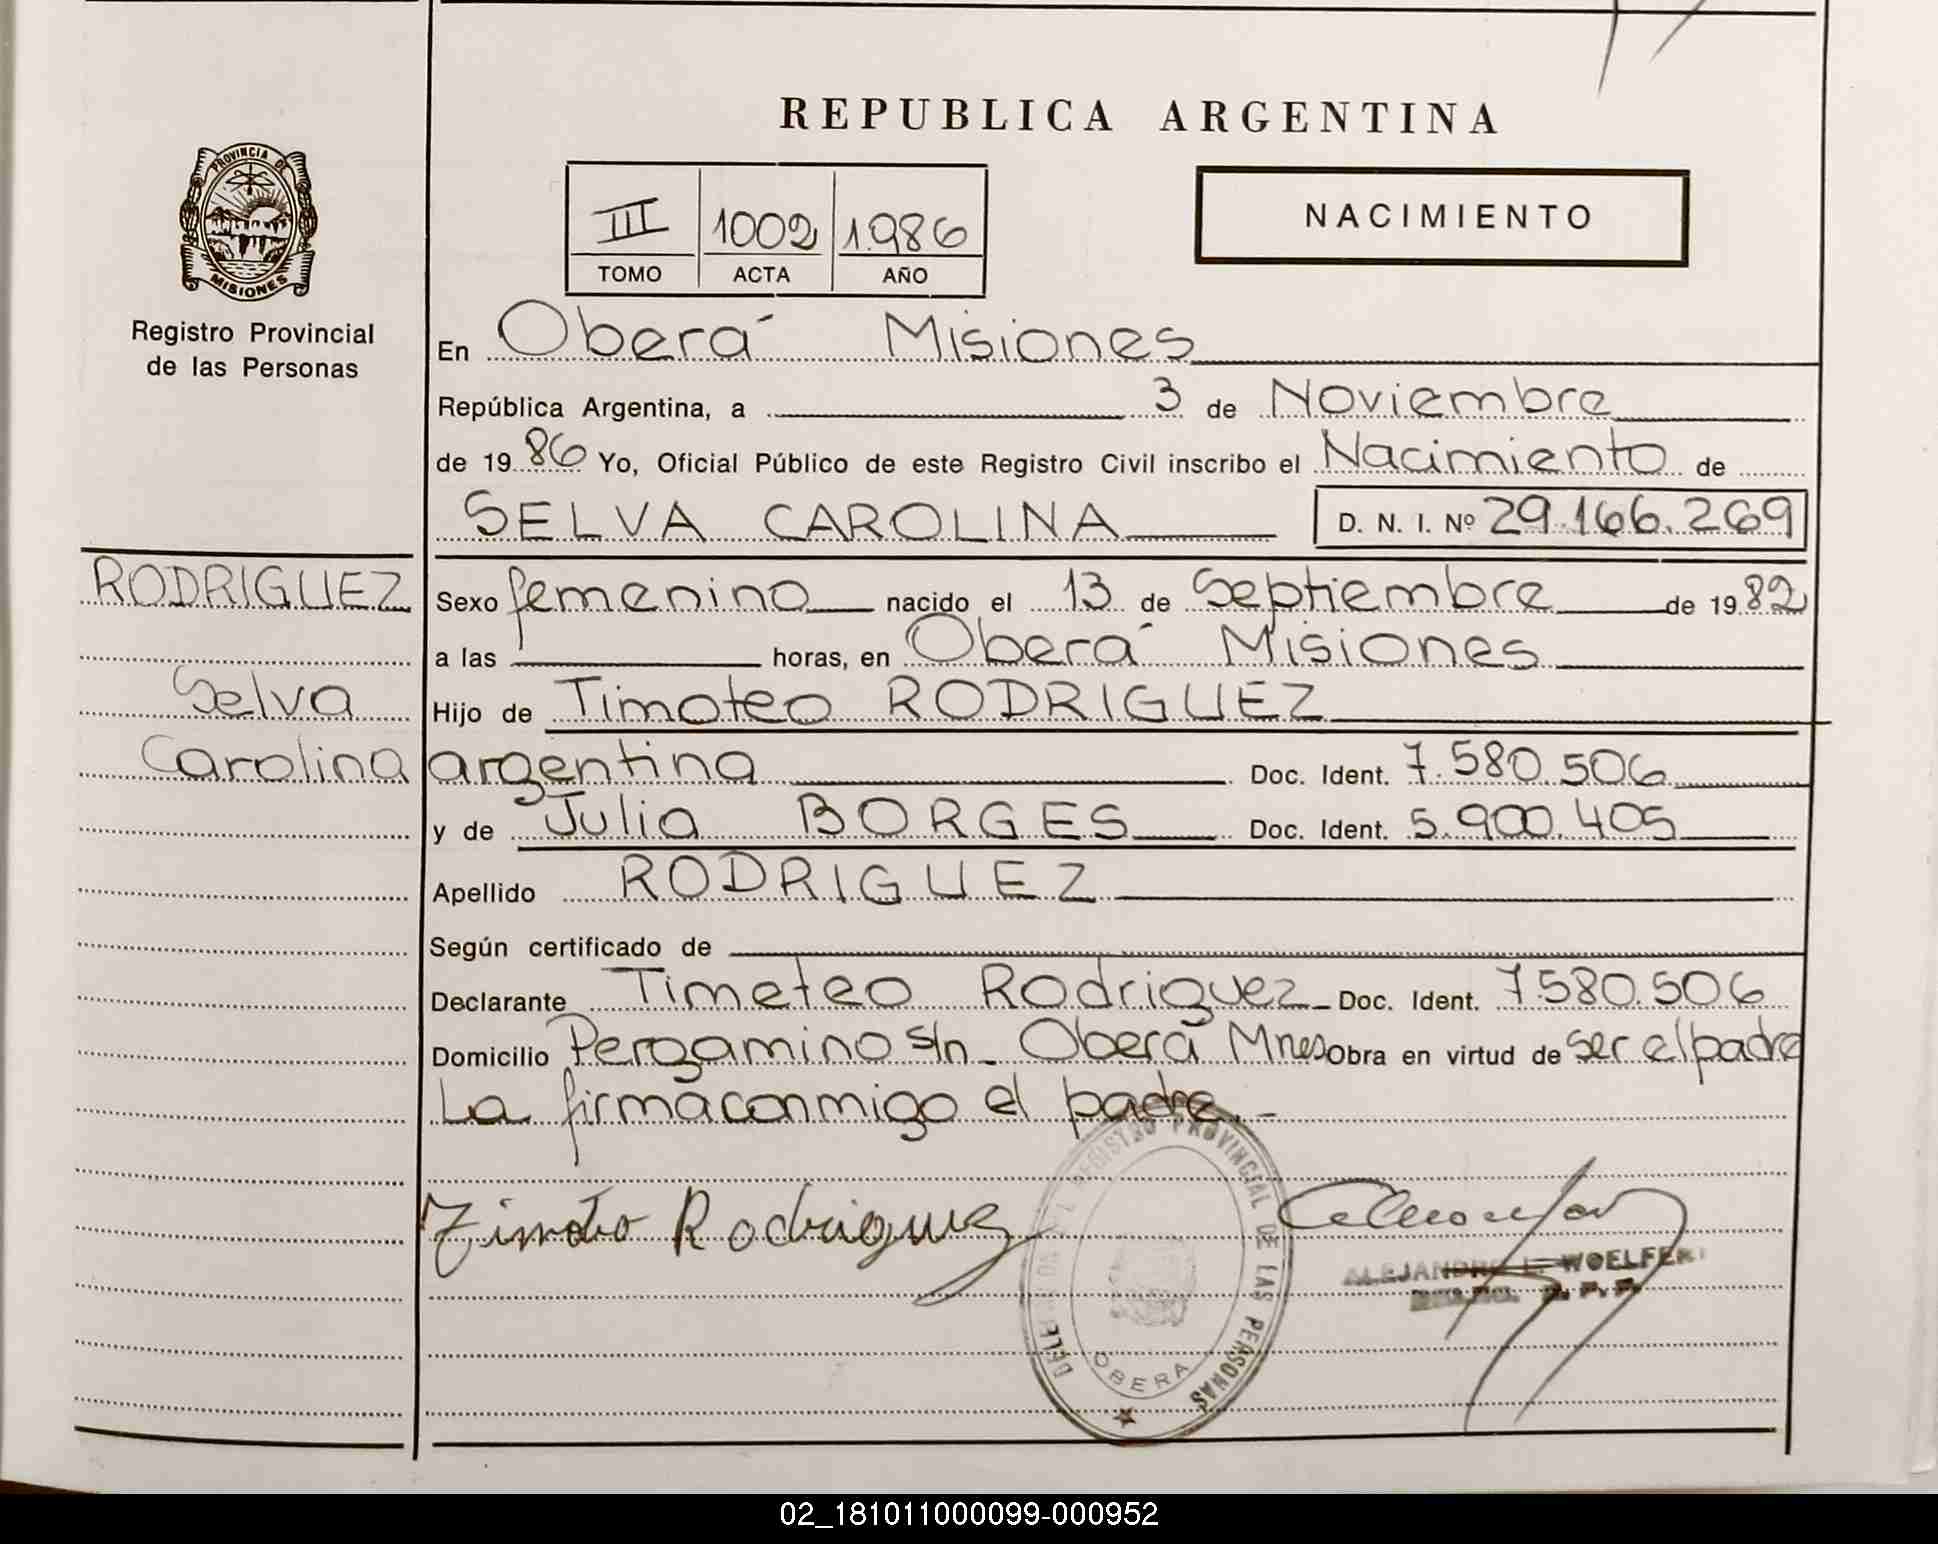 REPUBLICA ARGENTINA
PROVINCIA DE
MISIONES
Registro Provincial
de las Personas
III 1002 1.986
TOMO ACTA AÑO
NACIMIENTO
En Oberá Misiones
República Argentina, a 3 de Noviembre
de 1986 Yo, Oficial Público de este Registro Civil inscribo el Nacimiento de
SELVA CAROLINA D. N. I. Nº 29.166.269
RODRIGUEZ
Selva
Carolina
Sexo femenino nacido el 13 de Septiembre de 1982
a las horas, en Oberá Misiones
Hijo de Timoteo RODRIGUEZ
argentina Doc. Ident. 7.580.506
y de Julia BORGES Doc. Ident. 5.900.405
Apellido RODRIGUEZ
Según certificado de
Declarante Timeteo Rodriguez Doc. Ident. 7.580.506
Domicilio Pergamino s/n_ Oberá Mnes Obra en virtud de ser el padre
La firma conmigo el padre.-
Timoteo Rodriguez
REGISTRO PROVINCIAL DE LAS PERSONAS
OBERA
ALEJANDRO L. WOELFERT
02_181011000099-000952